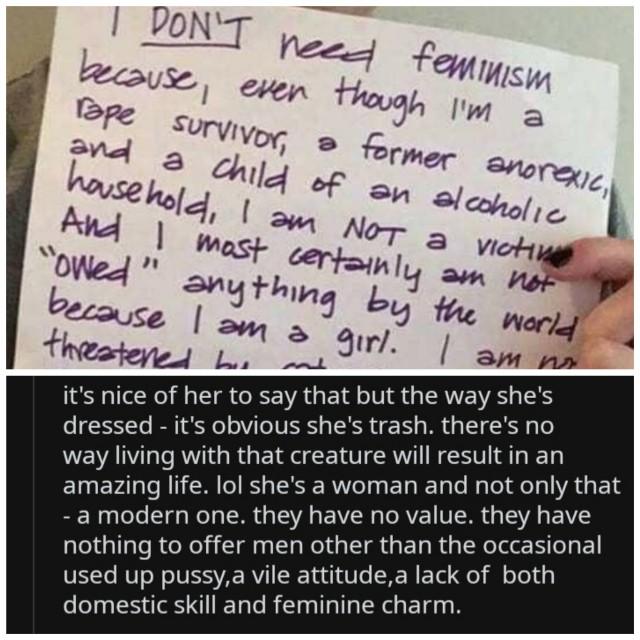 I DON'T need feminism
because, even though I'm a
rape survivor, a former anorexic,
and a child of an alcoholic
household, I am NOT a victim
And I most certainly am not
"owed" anything by the world
because I am a girl. I am
threatened by
it's nice of her to say that but the way she's
dressed - it's obvious she's trash. there's no
way living with that creature will result in an
amazing life. lol she's a woman and not only that
- a modern one. they have no value. they have
nothing to offer men other than the occasional
used up pussy,a vile attitude,a lack of both
domestic skill and feminine charm.